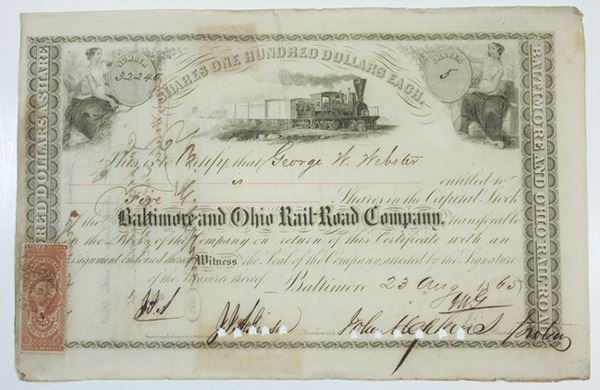 NUMBER
32240
SHARES ONE HUNDRED DOLLARS EACH.
5
This is to Certify, that George W. Webster
is entitled to
Five Shares in the Capital Stock
of the Baltimore and Ohio Rail-Road Company, transferable
on the Books of the Company on return of this Certificate with an
assignment endorsed thereon. Witness the Seal of the Company, attested by the Signature
of the Treasurer thereof. Baltimore 23 Aug 1865
DOLLARS SHARE
BALTIMORE AND OHIO RAIL-ROAD
25